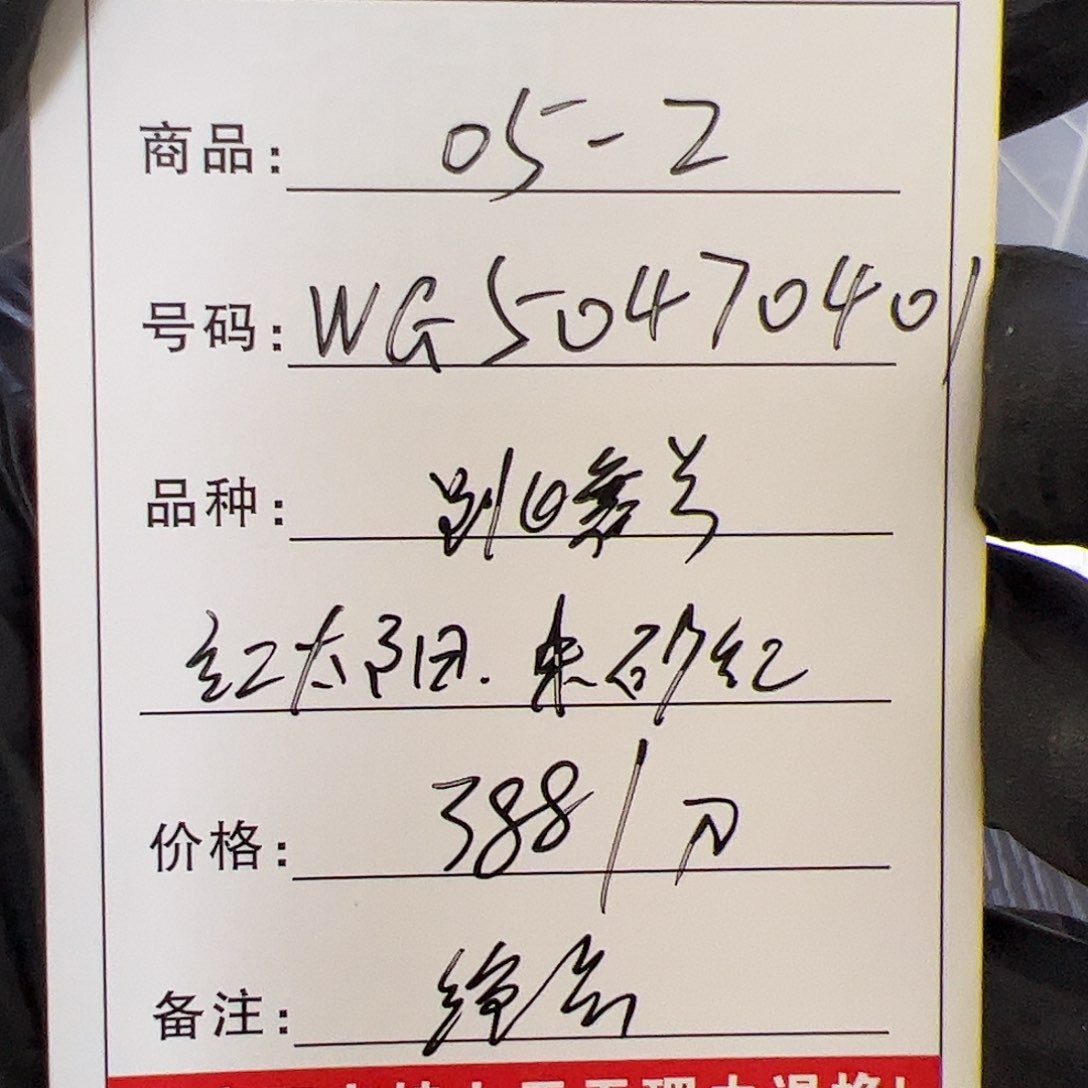 商品: 05-2
号码: WG50470401
品种:
红太阳.朱砂红
价格: 388/刀
备注: